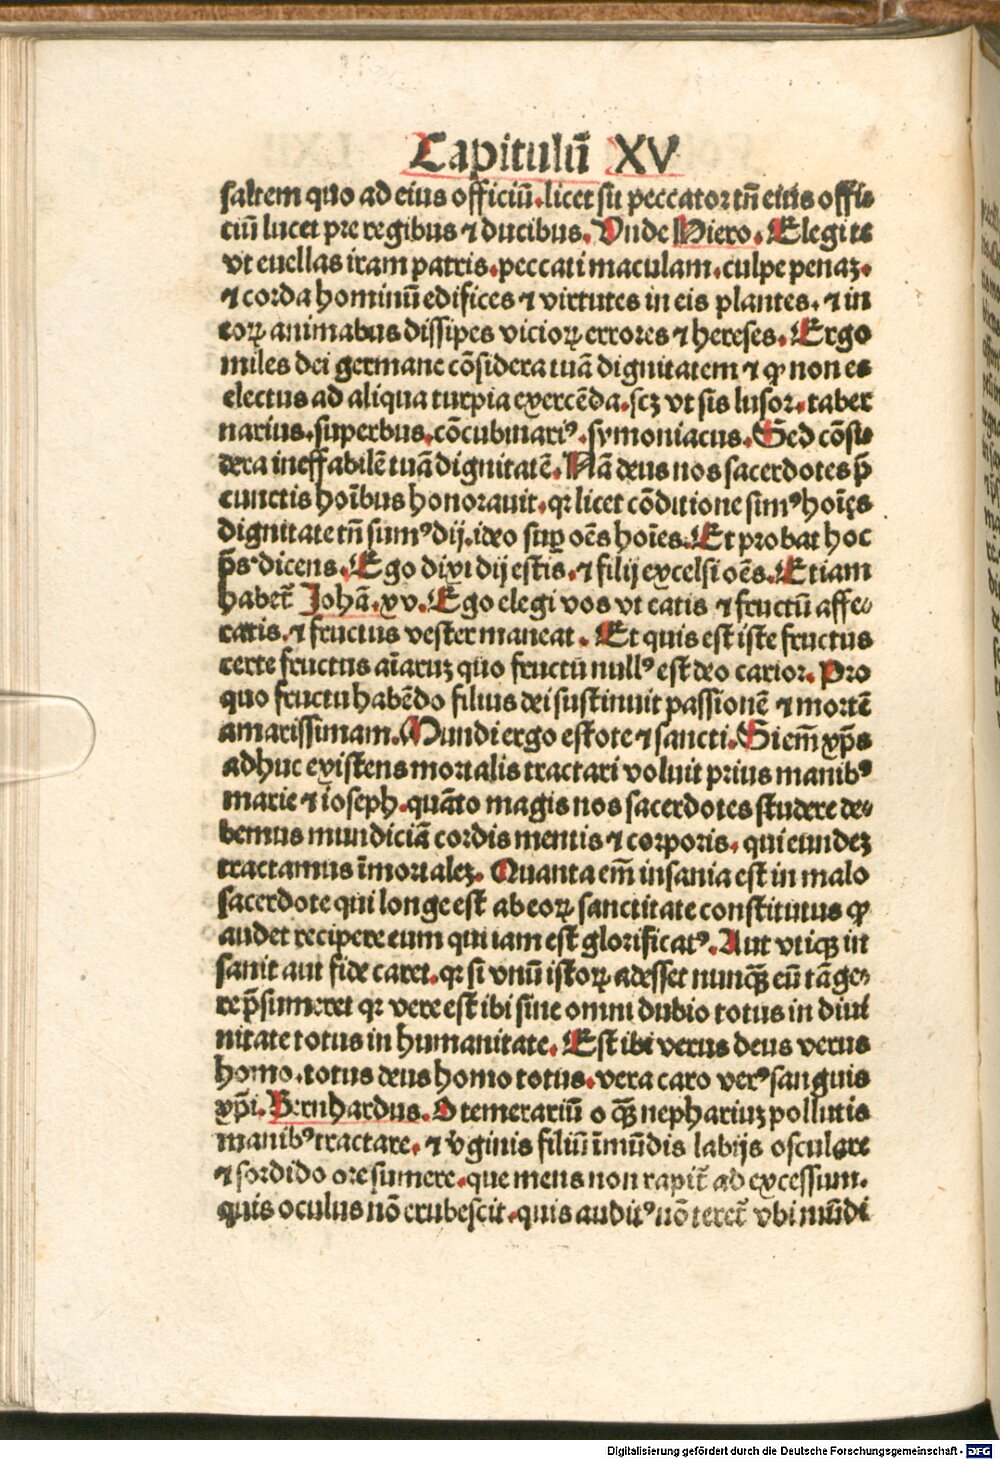 Capitulū XV
saltem quo ad eius officiū.licet sit peccator tñ eius offi⸗
ciū lucet pre regibus ⁊ ducibus. Vnde Hiero. Elegi te
vt euellas iram patris.peccati maculam.culpe penaꝫ.
⁊ corda hominū edifices ⁊ virtutes in eis plantes. ⁊ in
eoꝝ animabus dissipes vicioꝝ errores ⁊ hereses. Ergo
miles dei germane cōsidera tuā dignitatem ⁊ ꝙ non es
electus ad aliqua turpia exercēda.scꝫ vt sis lusor.taber
narius.superbus.cōcubinariꝰ.symoniacus. Sed cōsi⸗
dera ineffabilē tuā dignitatē. Nā deus nos sacerdotes p̄
cunctis hoībus honorauit.qꝛ licet cōditione simꝰ hoīes
dignitate tñ sumꝰ dij.ideo suꝑ oēs hoīes. Et probat hoc
p̄s dicens. Ego dixi dij estis.⁊ filij excelsi oēs. Etiam
habet̄ Johā.xv. Ego elegi vos vt eatis ⁊ fructū affe⸗
ratis.⁊ fructus vester maneat. Et quis est iste fructus
certe fructus aīaruꝫ quo fructu nullꝰ est deo carior. Pro
quo fructu habēdo filius dei sustinuit passionē ⁊ mortē
amarissimam. Mundi ergo estote ⁊ sancti. Si em̄ xp̄s
adhuc existens mortalis tractari voluit prius manibꝰ
marie ⁊ ioseph.quāto magis nos sacerdotes studere de⸗
bemus mundiciā cordis mentis ⁊ corporis. qui eundeꝫ
tractamus īmortaleꝫ. Quanta em̄ insania est in malo
sacerdote qui longe est ab eoꝝ sanctitate constitutus ꝙ
audet recipere eum qui iam est glorificatꝰ. Aut vtiqꝫ in
sanit aut fide caret.qꝛ si vnū istoꝝ adesset nunqꝫ eū tāge⸗
re p̄sumeret qꝛ vere est ibi sine omni dubio totus in diui
nitate totus in humanitate. Est ibi verus deus verus
homo.totus deus homo totus.vera caro verꝰ sanguis
xp̄i. Bernhardus. O temerariū o qꝫ nephariuꝫ pollutis
manibꝰ tractare. ⁊ v̄ginis filiū īmūdis labijs osculare
⁊ sordido ore sumere.que mens non rapit̄ ad excessum.
quis oculus nō erubescit.quis auditꝰ nō teret̄ vbi mūdi
Digitalisierung gefördert durch die Deutsche Forschungsgemeinschaft - DFG